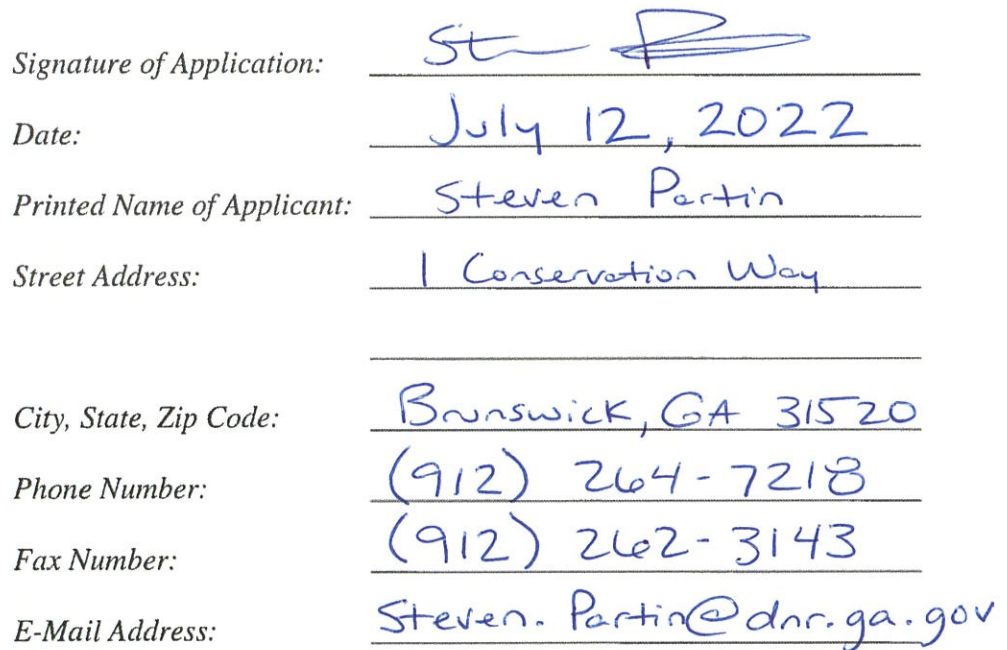 Signature of Application:
Date: July 12, 2022
Printed Name of Applicant: Steven Partin
Street Address: 1 Conservation Way
City, State, Zip Code: Brunswick, GA 31520
Phone Number: (912) 264-7218
Fax Number: (912) 262-3143
E-Mail Address: Steven.Partin@dnr.ga.gov